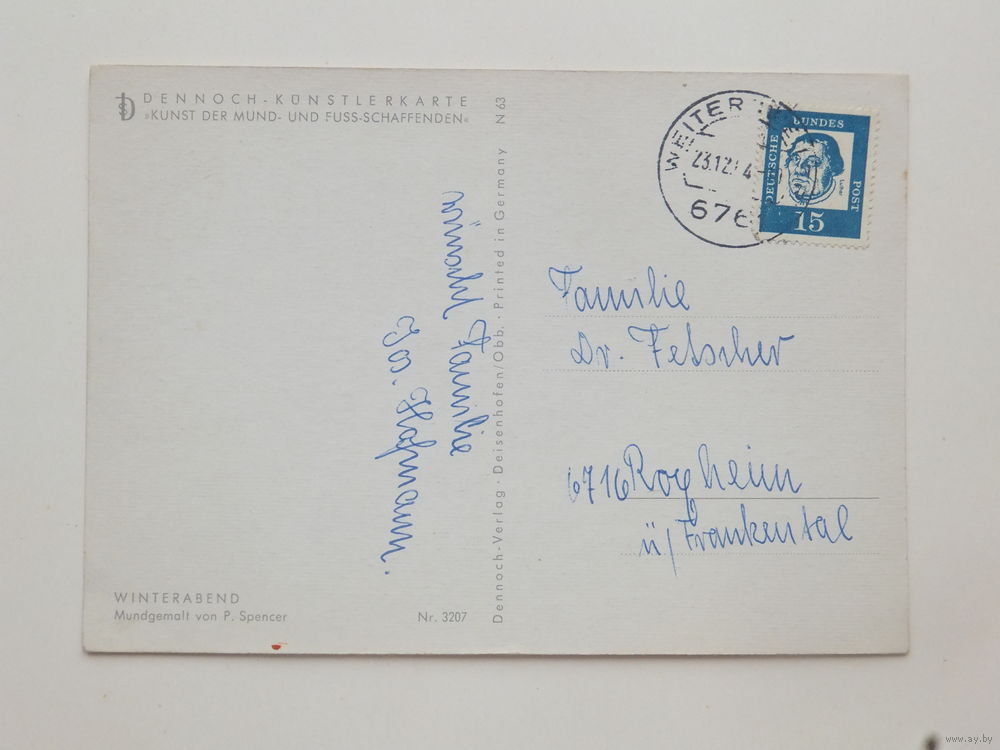 DENNOCH-KÜNSTLERKARTE
»KUNST DER MUND- UND FUSS-SCHAFFENDEN«
wünscht Familie
Jos. Hofmann.
Dennoch-Verlag · Deisenhofen/Obb. · Printed in Germany N 63
WEITER
23.12. 4
676
DEUTSCHE
BUNDES
POST
Luther
15
Familie
Dr. Fetscher
6716
ü/Frankental
WINTERABEND
Mundgemalt von P. Spencer
Nr. 3207
www.ay.by